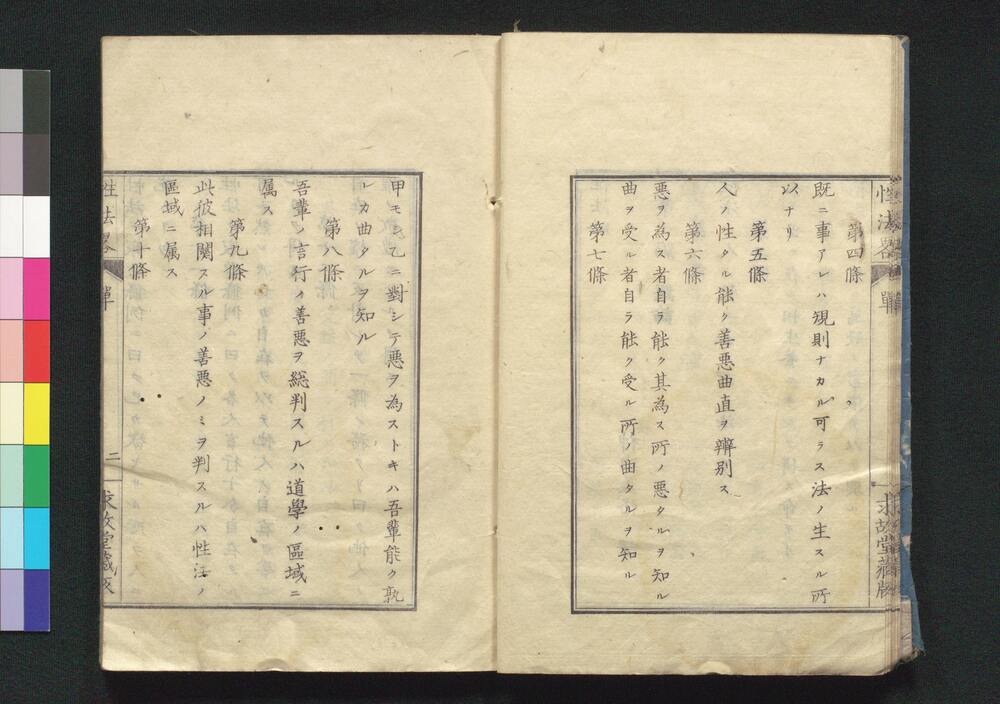 性法畧 單
第四條
既ニ事アレハ規則ナカル可ラス法ノ生スル所
以ナリ
第五條
人ノ性タル能ク善悪曲直ヲ辨别ス
第六條
悪ヲ為ス者自ラ能ク其為ス所ノ悪タルヲ知ル
曲ヲ受ル者自ラ能ク受ル所ノ曲タルヲ知ル
第七條
求故堂藏版
甲モシ乙ニ對シテ悪ヲ為ストキハ吾輩能ク孰
レカ曲タルヲ知ル
第八條
吾輩ノ言行ノ善悪ヲ総判スルハ道學ノ區域ニ
属ス
第九條
此彼相関スル事ノ善悪ノミヲ判スルハ性法ノ
區域ニ属ス
第十條
性法畧 單 二 求故堂藏版